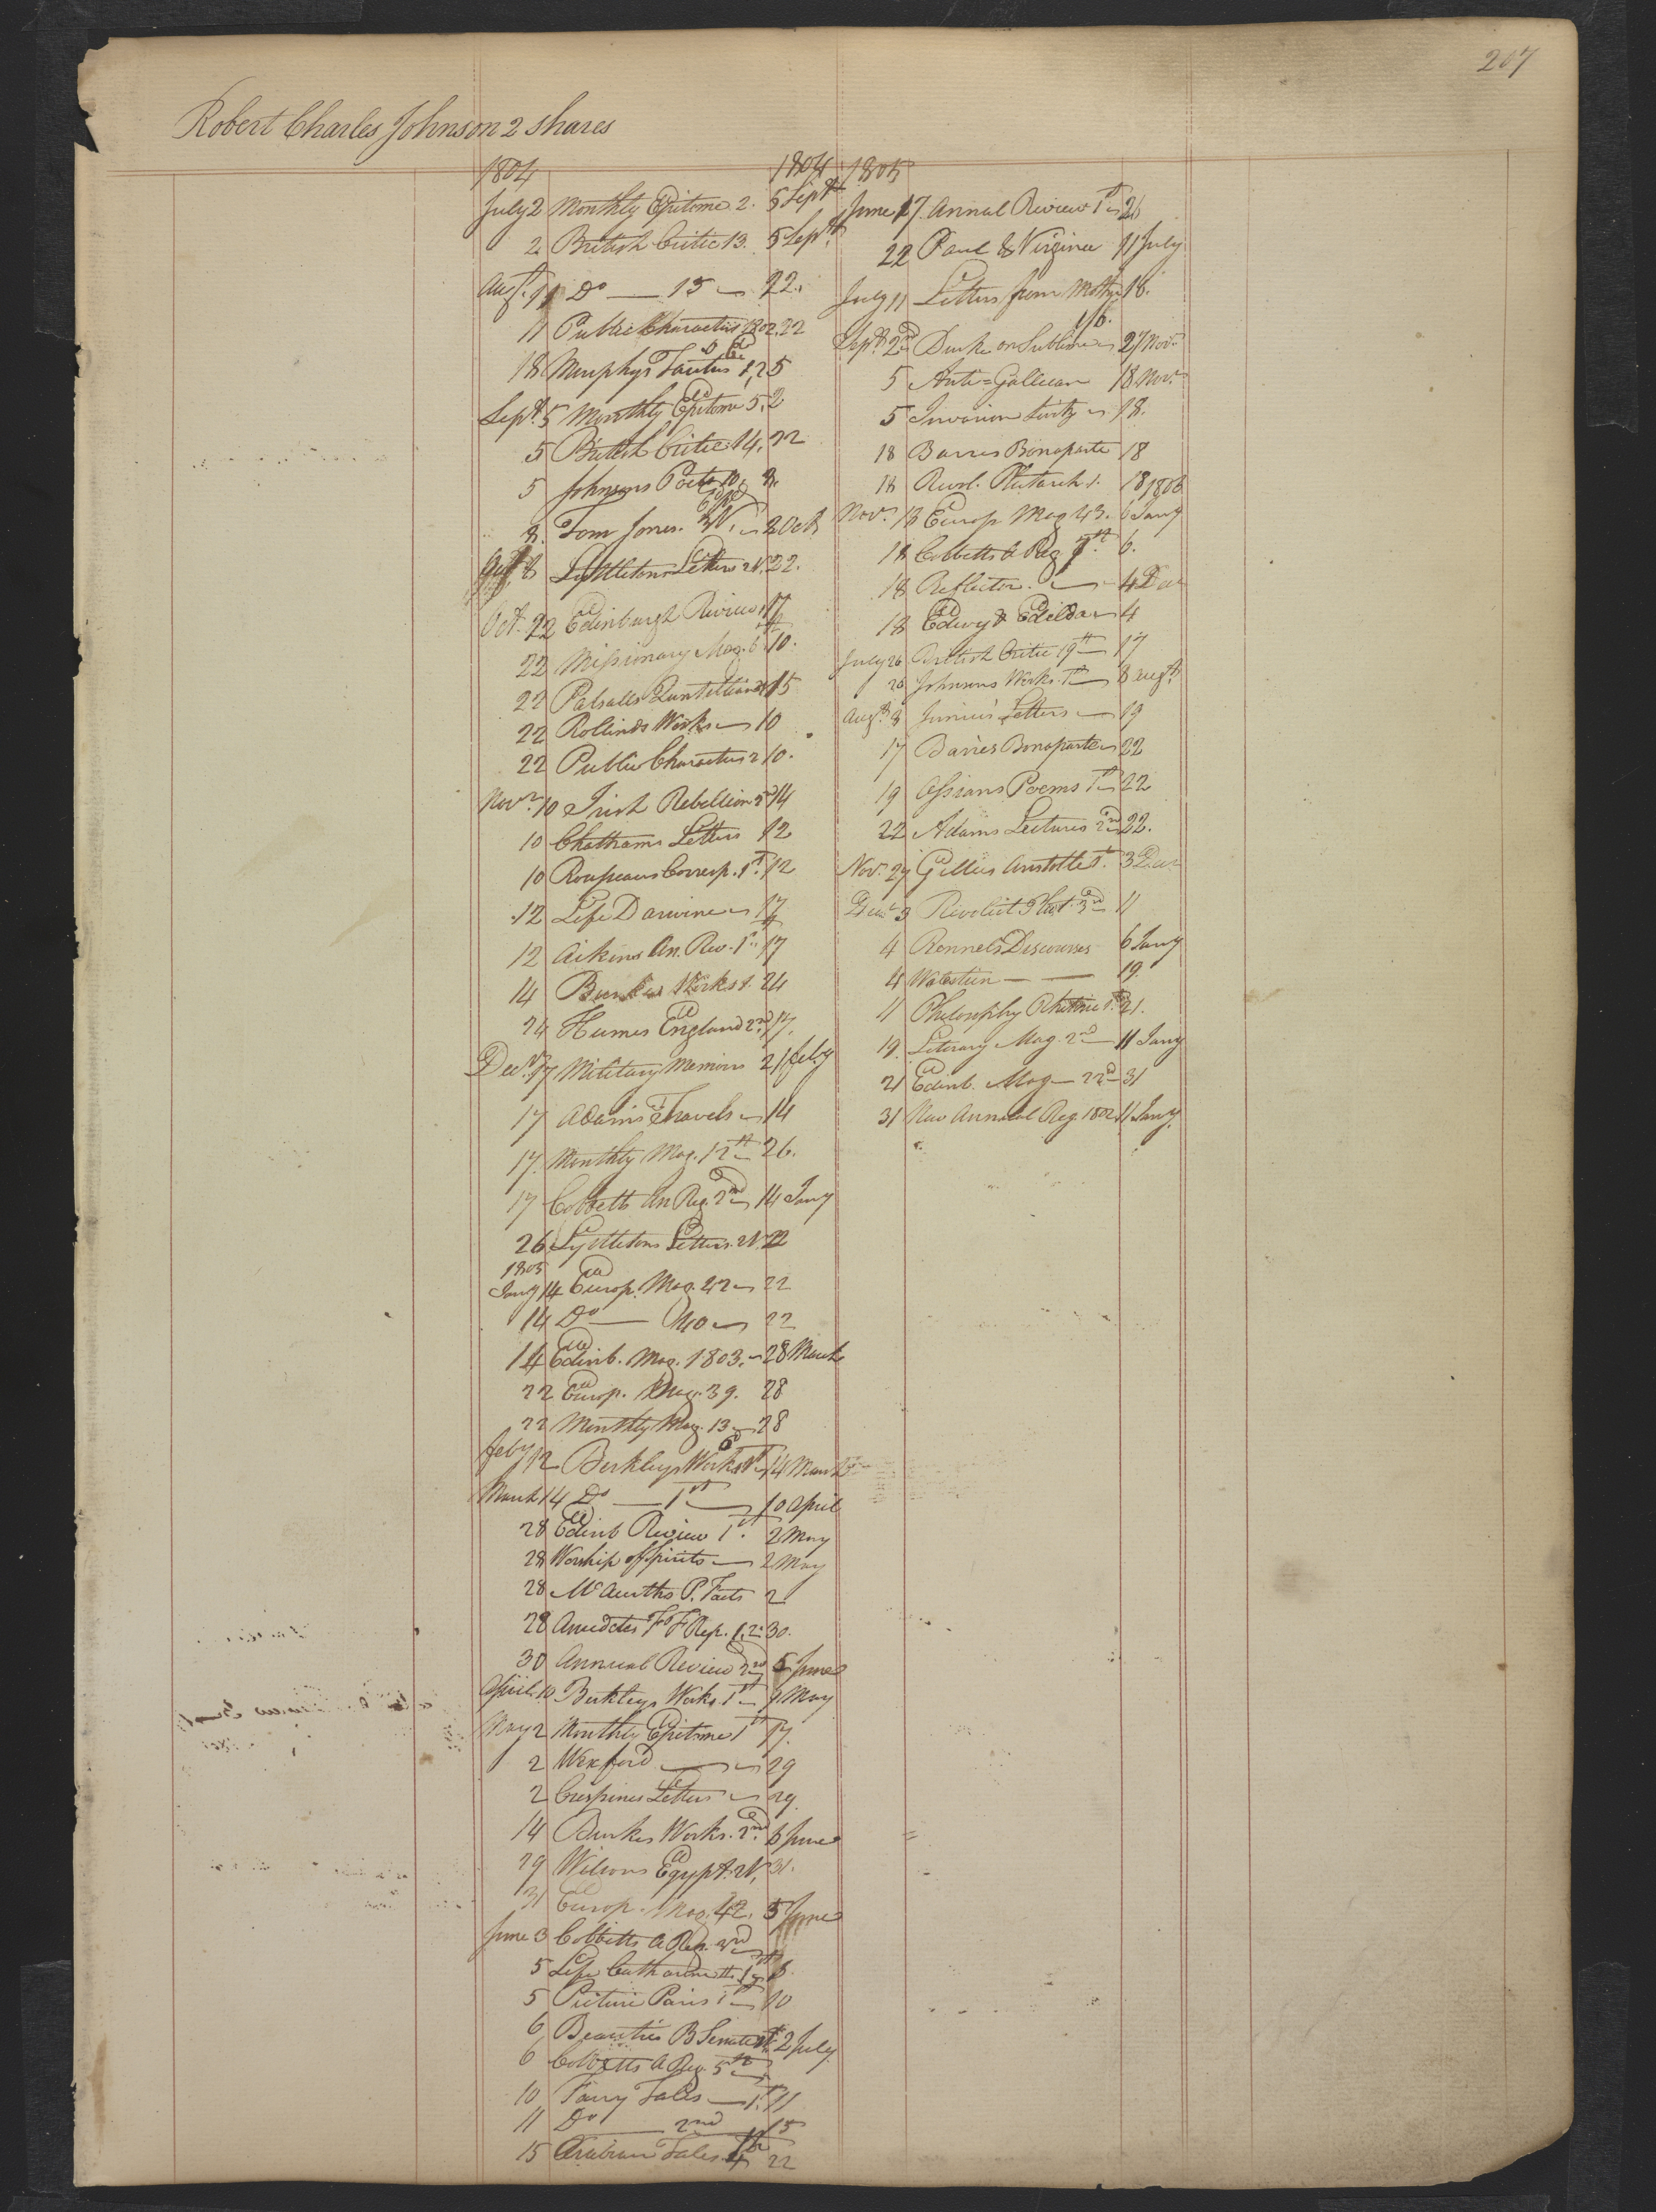 207
Robert Charles Johnson 2 shares
1804 1804
July 2 Monthly Epitome 2. 5 Sept
2 British Critic 13. 5 Sept
Augt. 11 Do — 15 22.
11 Public Characters 1802. 22
18 Murphys Tacitus 1, 2 5
Sept. 5 Monthly Epitome 5. 2
5 British Critic 14. 22
5 Johnsons Poets 10. 8.
8. Tom Jones. 2 Oct
8 Lyttletons Letters 2V. 22.
Oct. 22 Edinburgh Review 17
22 Missionary Mag. 6 10.
22 Patsalls Quintilian 15
22 Rollinds Works 10
22 Public Characters 2 10.
Novr. 10 Irish Rebellion 2d 14
10 Chathams Letters 12
10 Rousseaus Corresp. 1st. 12
12 Life Darwine 17
12 Aikins An. Rev. 1st 17
14 Burkes Works 1. 24
24 Humes England 2nd. 17.
Decr. 17 Military Memoirs 21 feby
17 Adams Travels 14
17. Monthly Mag. 12th 26.
17 Cobbetts An Reg. 2nd 14 Jany
26 Lyttletons Letters. 2V. 22
1805
Jany 14 Europ. Mag. 42 22
14 Do — 40 22
14 Edinb. Mag. 1803. 28 March
22 Europ. Mag. 39. 28
22 Monthly Mag. 13 28
feby 12 Berkleys Works 14 March
March 14 Do — 1st 10 April
28 Edinb Review 1st. 2 May
28 Worship of Spirits 2 May
28 McAurths P. Facts 2
28 Anecdotes F F Rep. 1,2. 30.
30 Annual Review 2nd 5 June
April 10 Berkleys Works 1st 9 May
May 2 Monthly Epitome 1st 17.
2 Wexford 29
2 Crespines Letters 29.
14 Burkes Works. 2nd. 6 June
29 Wilsons Egypt. 2V, 31.
31 Europ. Mag. 42. 5 June
June 3 Cobbetts A Reg. 3rd
5 Life Catharine II. 1st 6.
5 Picture Paris 1st 10
6 Beauties B Senate 1st 2 July
6 Cobbetts A Reg. 5th
10 Fairy Tales — 1st. 11
11 Do — 2nd 15
15 Arabian Tales 4th 22
1805
June 17. Annul Review 1st 26
22 Paul & Virginia 11 July
July 11 Letters from Mothr 18.
Sept. 2nd Burke on Sublime 27 Novr
5 Anti=Gallican 18 Novr.
5 Invasion 18.
18 Barres Bonaparte 18
18 Revol. Plutarch 1. 18 1806
Novr. 18 Europ Mag 43. 6 Jany
18 Cobbetts A Reg 6.
18 Reflector. 4 Dec
18 Edwy & Edilda 4
July 26 British Critic 19th 17
26 Johnsons Works. 1st 8 Augt.
Augt. 8 Junius' Letters — 19
17 Barres Bonaparte 22
19 Ossians Poems 1st 22
22 Adams Lectures 2nd 22.
Novr. 27 Gillies Aristotle 1st. 3 Decr
Decr 3 Revolut Plut. 3rd 11
4 Rennels Discourses 6 Jany
4 Walstein — — 19.
11 Philosophy Rhetoric 1st 21.
19. Literary Mag. 2nd — 11 Jany
21 Edinb. Mag — 22nd 31
31 New Annual Reg. 1802. 11 Jany.